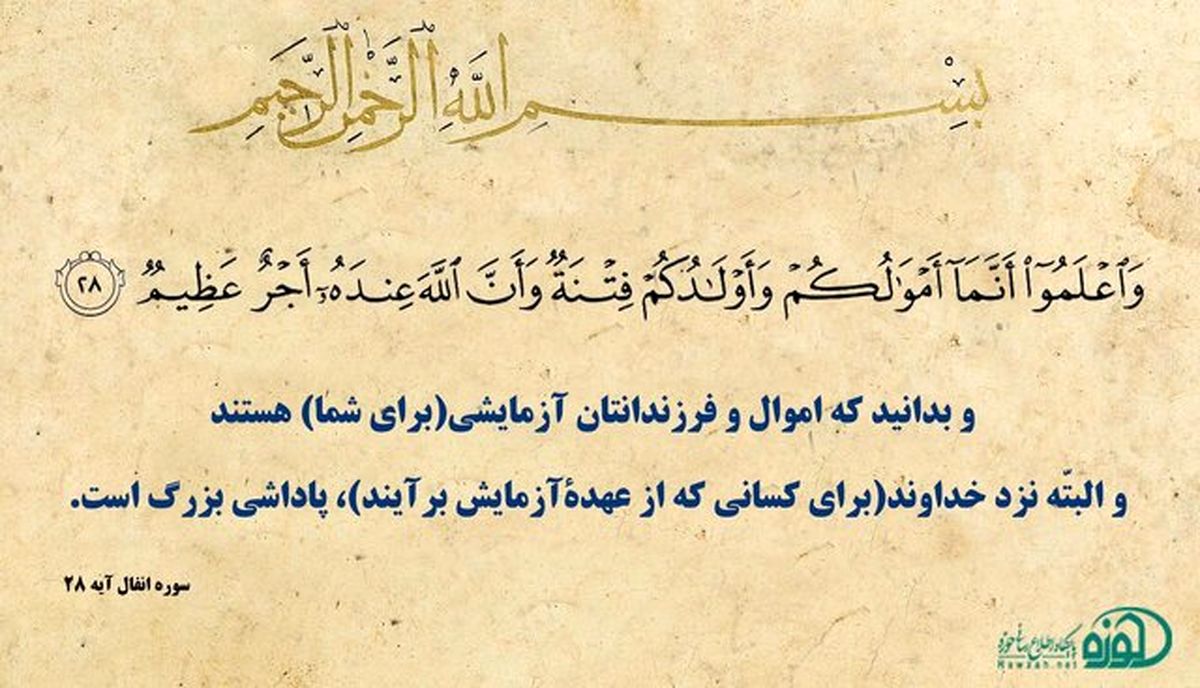 بِسْمِ اللَّهِ الرَّحْمَٰنِ الرَّحِيمِ
وَٱعۡلَمُوٓاْ أَنَّمَآ أَمۡوَٰلُكُمۡ وَأَوۡلَٰدُكُمۡ فِتۡنَةٞ وَأَنَّ ٱللَّهَ عِندَهُۥٓ أَجۡرٌ عَظِيمٞ ٢٨
و بدانید که اموال و فرزندانتان آزمایشی(برای شما) هستند
و البتّه نزد خداوند(برای کسانی که از عهدهٔآزمایش برآیند)، پاداشی بزرگ است.
سوره انفال آیه ۲۸
حوزه
پایگاه اطلاع رسانی حوزه
Hawzah.net